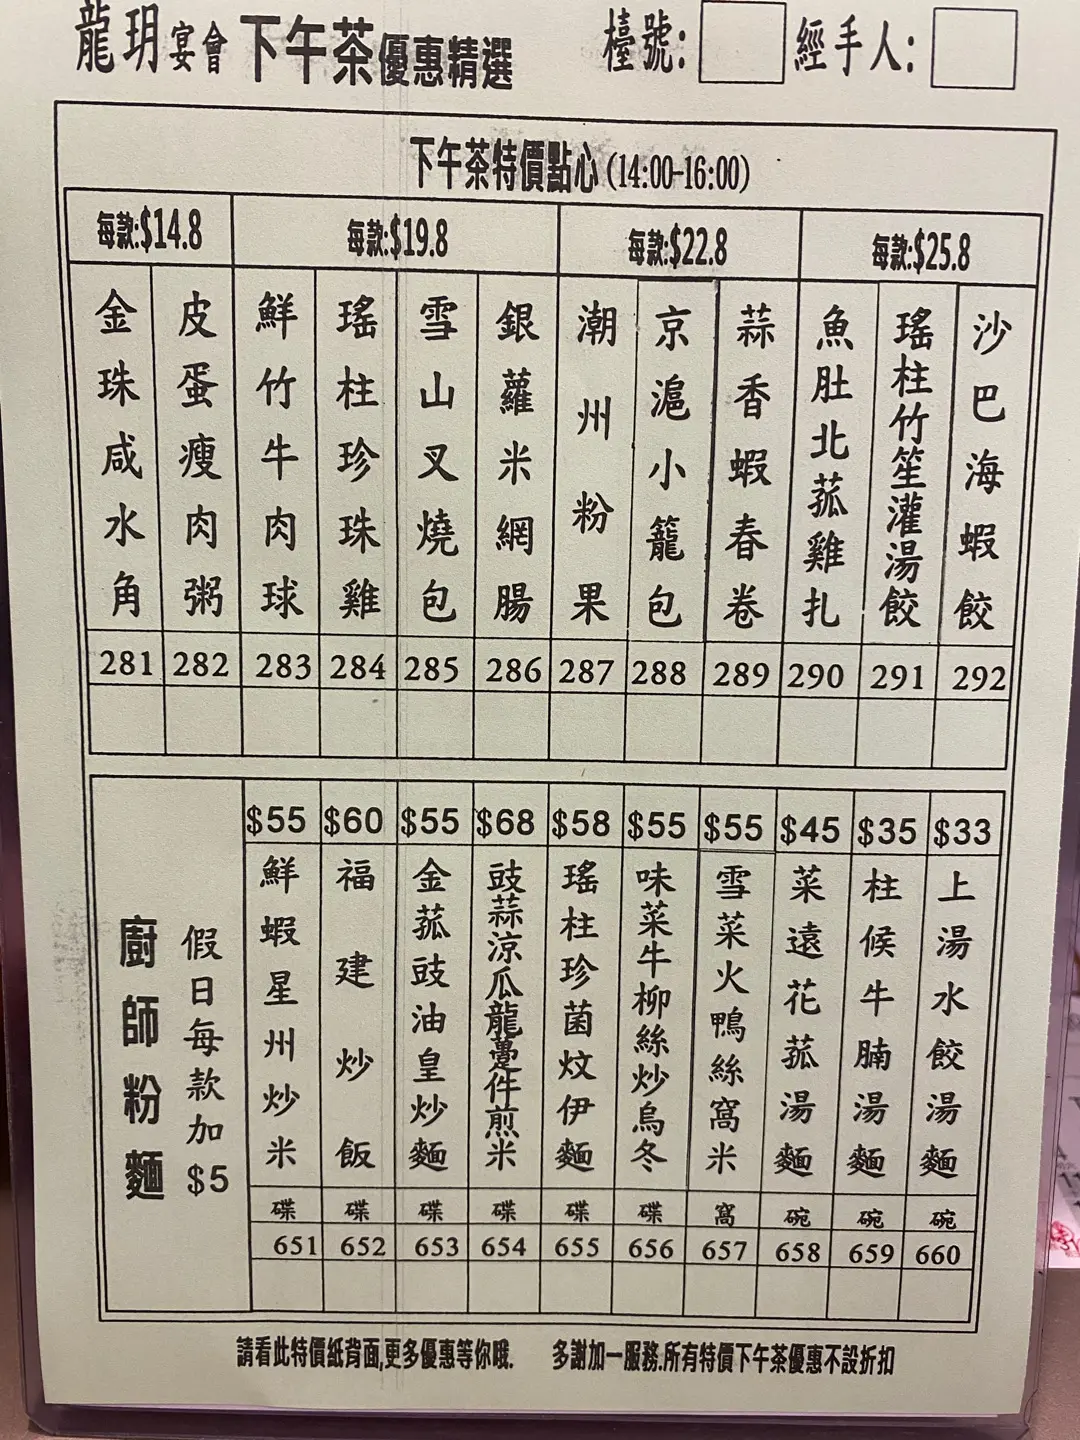 龍玥宴會 下午茶優惠精選 檯號: 經手人:
下午茶特價點心 (14:00-16:00)
每款:$14.8 每款:$19.8 每款:$22.8 每款:$25.8
金珠咸水角
皮蛋瘦肉粥
鮮竹牛肉球
瑤柱珍珠雞
雪山叉燒包
銀蘿米網腸
潮州粉果
京滬小籠包
蒜香蝦春卷
魚肚北菰雞扎
瑤柱竹笙灌湯餃
沙巴海蝦餃
281 282 283 284 285 286 287 288 289 290 291 292
廚師粉麵
假日每款加$5
$55 $60 $55 $68 $58 $55 $55 $45 $35 $33
鮮蝦星州炒米
福建炒飯
金菰豉油皇炒麵
豉蒜涼瓜龍躉件煎米
瑤柱珍菌炆伊麵
味菜牛柳絲炒烏冬
雪菜火鴨絲窩米
菜遠花菰湯麵
柱候牛腩湯麵
上湯水餃湯麵
碟 碟 碟 碟 碟 碟 窩 碗 碗 碗
651 652 653 654 655 656 657 658 659 660
請看此特價紙背面,更多優惠等你哦. 多謝加一服務.所有特價下午茶優惠不設折扣